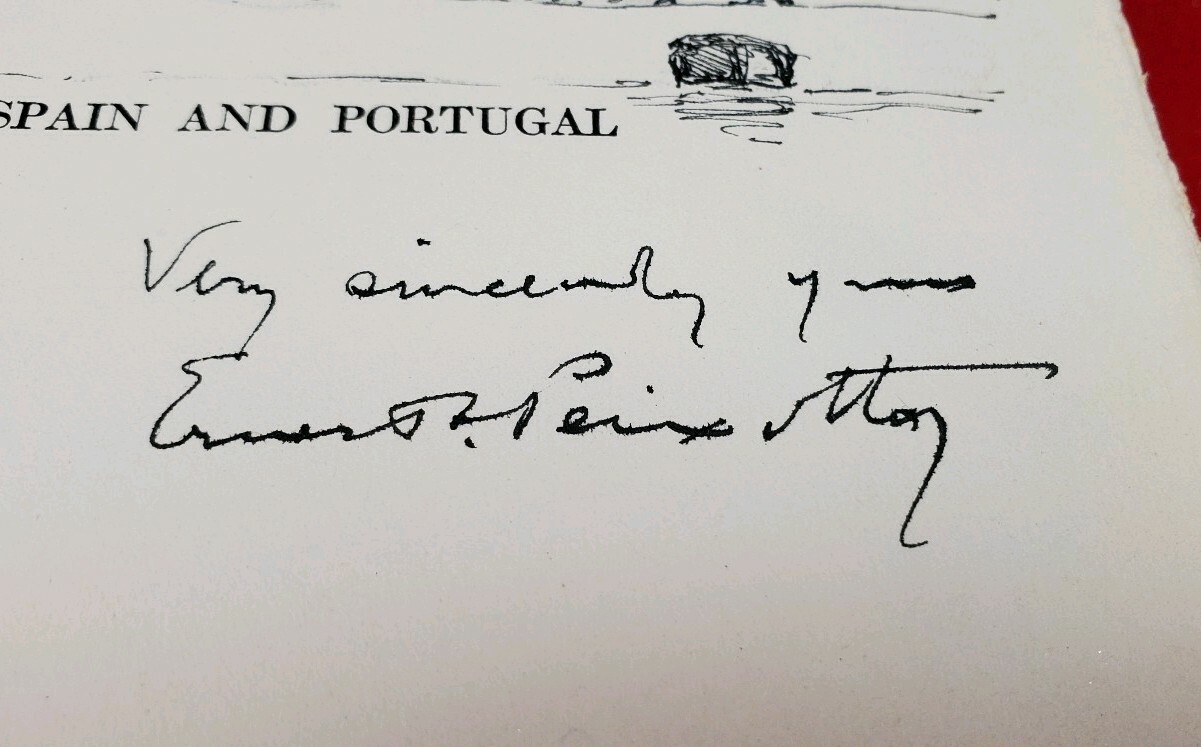 SPAIN AND PORTUGAL
Very sincerely yours
Ernest Peixotto